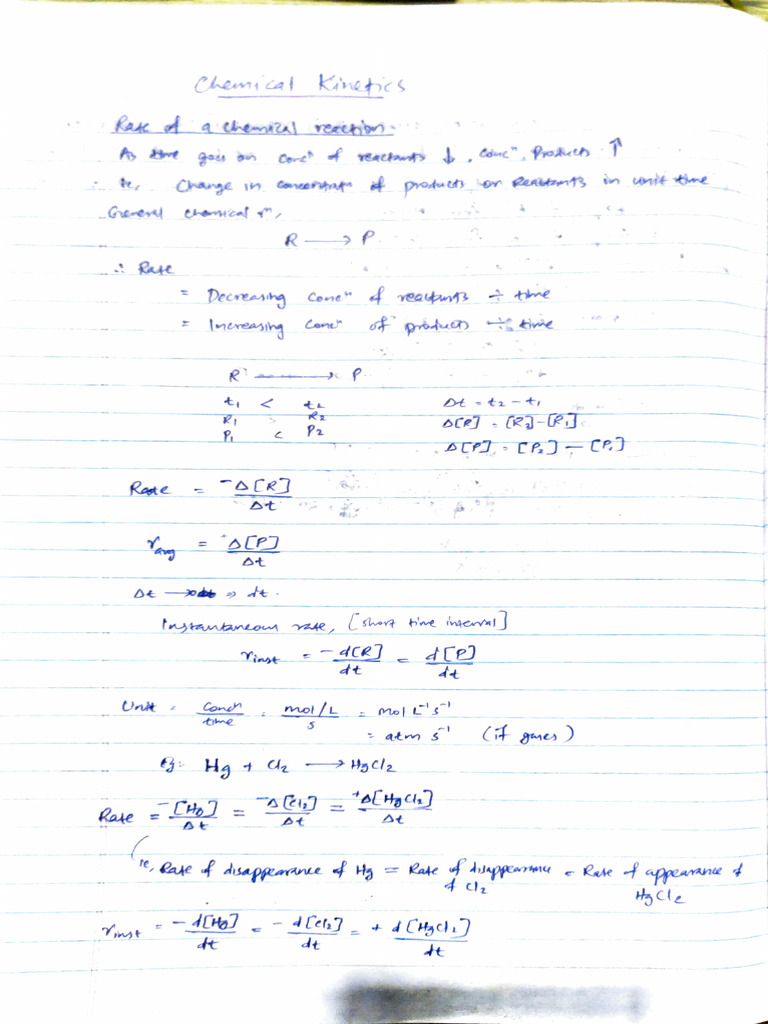 Chemical Kinetics
Rate of a chemical reaction.
As time goes on concⁿ of reactants ↓, concⁿ. Products ↑
ie, Change in concentratⁿ of products or Reactants in unit time
General chemical rⁿ,
R ⟶ P
∴ Rate
= Decreasing concⁿ of reactants ÷ time
= Increasing concⁿ of products ÷ time
R ⟶ P
t₁ < t₂ Δt = t₂ - t₁
R₁ > R₂ Δ[R] = [R₂]-[R₁]
P₁ < P₂ Δ[P] = [P₂] - [P₁]
Rate = -Δ[R]/Δt
r avg = Δ[P]/Δt
Δt ⟶ ⇒ dt.
Instantaneous rate, [short time interval]
rinst = -d[R]/dt = d[P]/dt
Unit = Concⁿ/time = mol/L/s = mol L⁻¹s⁻¹
= atm s⁻¹ (if gases)
Eg: Hg + Cl₂ ⟶ HgCl₂
Rate = -[Hg]/Δt = -Δ[Cl₂]/Δt = +Δ[HgCl₂]/Δt
ie, Rate of disappearance of Hg = Rate of disappearance of Cl₂ = Rate of appearance of HgCl₂
rinst = -d[Hg]/dt = -d[Cl₂]/dt = + d[HgCl₂]/dt